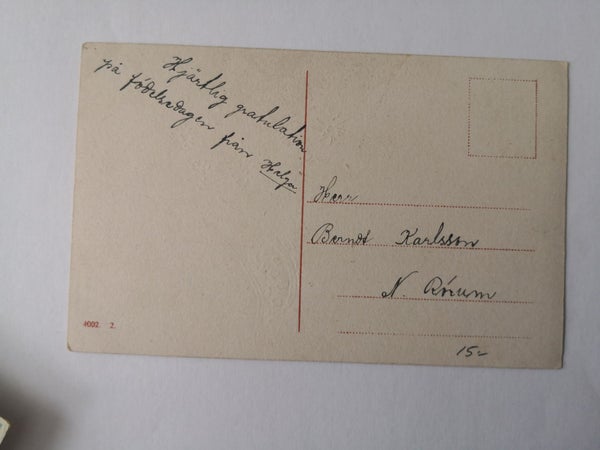 Hjärtlig gratulation
på födelsedagen från Helga
Herr
Berndt Karlsson
N. Rörum
15-
4002. 2.